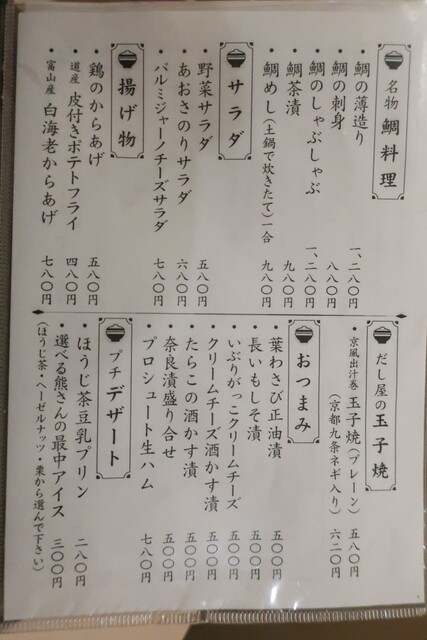 名物 鯛料理
・鯛の薄造り 一、二八〇円
・鯛の刺身 八八〇円
・鯛のしゃぶしゃぶ 一、二八〇円
・鯛茶漬 九八〇円
・鯛めし(土鍋で炊きたて)一合 九八〇円
サラダ
・野菜サラダ 五八〇円
・あおさのりサラダ 六八〇円
・パルミジャーノチーズサラダ 七八〇円
揚げ物
・鶏のからあげ 五八〇円
・道産 皮付きポテトフライ 四八〇円
・富山産 白海老からあげ 七八〇円
だし屋の玉子焼
・京風出汁巻 玉子焼(プレーン) 五八〇円
(京都九条ネギ入り) 六二〇円
おつまみ
・葉わさび正油漬 五〇〇円
・長いもしそ漬 五〇〇円
・いぶりがっこクリームチーズ 五〇〇円
・クリームチーズ酒かす漬 五〇〇円
・たらこの酒かす漬 五〇〇円
・奈良漬盛り合せ 五〇〇円
・プロシュート生ハム 七八〇円
プチデザート
・ほうじ茶豆乳プリン 二八〇円
・選べる熊さんの最中アイス 三〇〇円
(ほうじ茶・ヘーゼルナッツ・栗から選んで下さい)